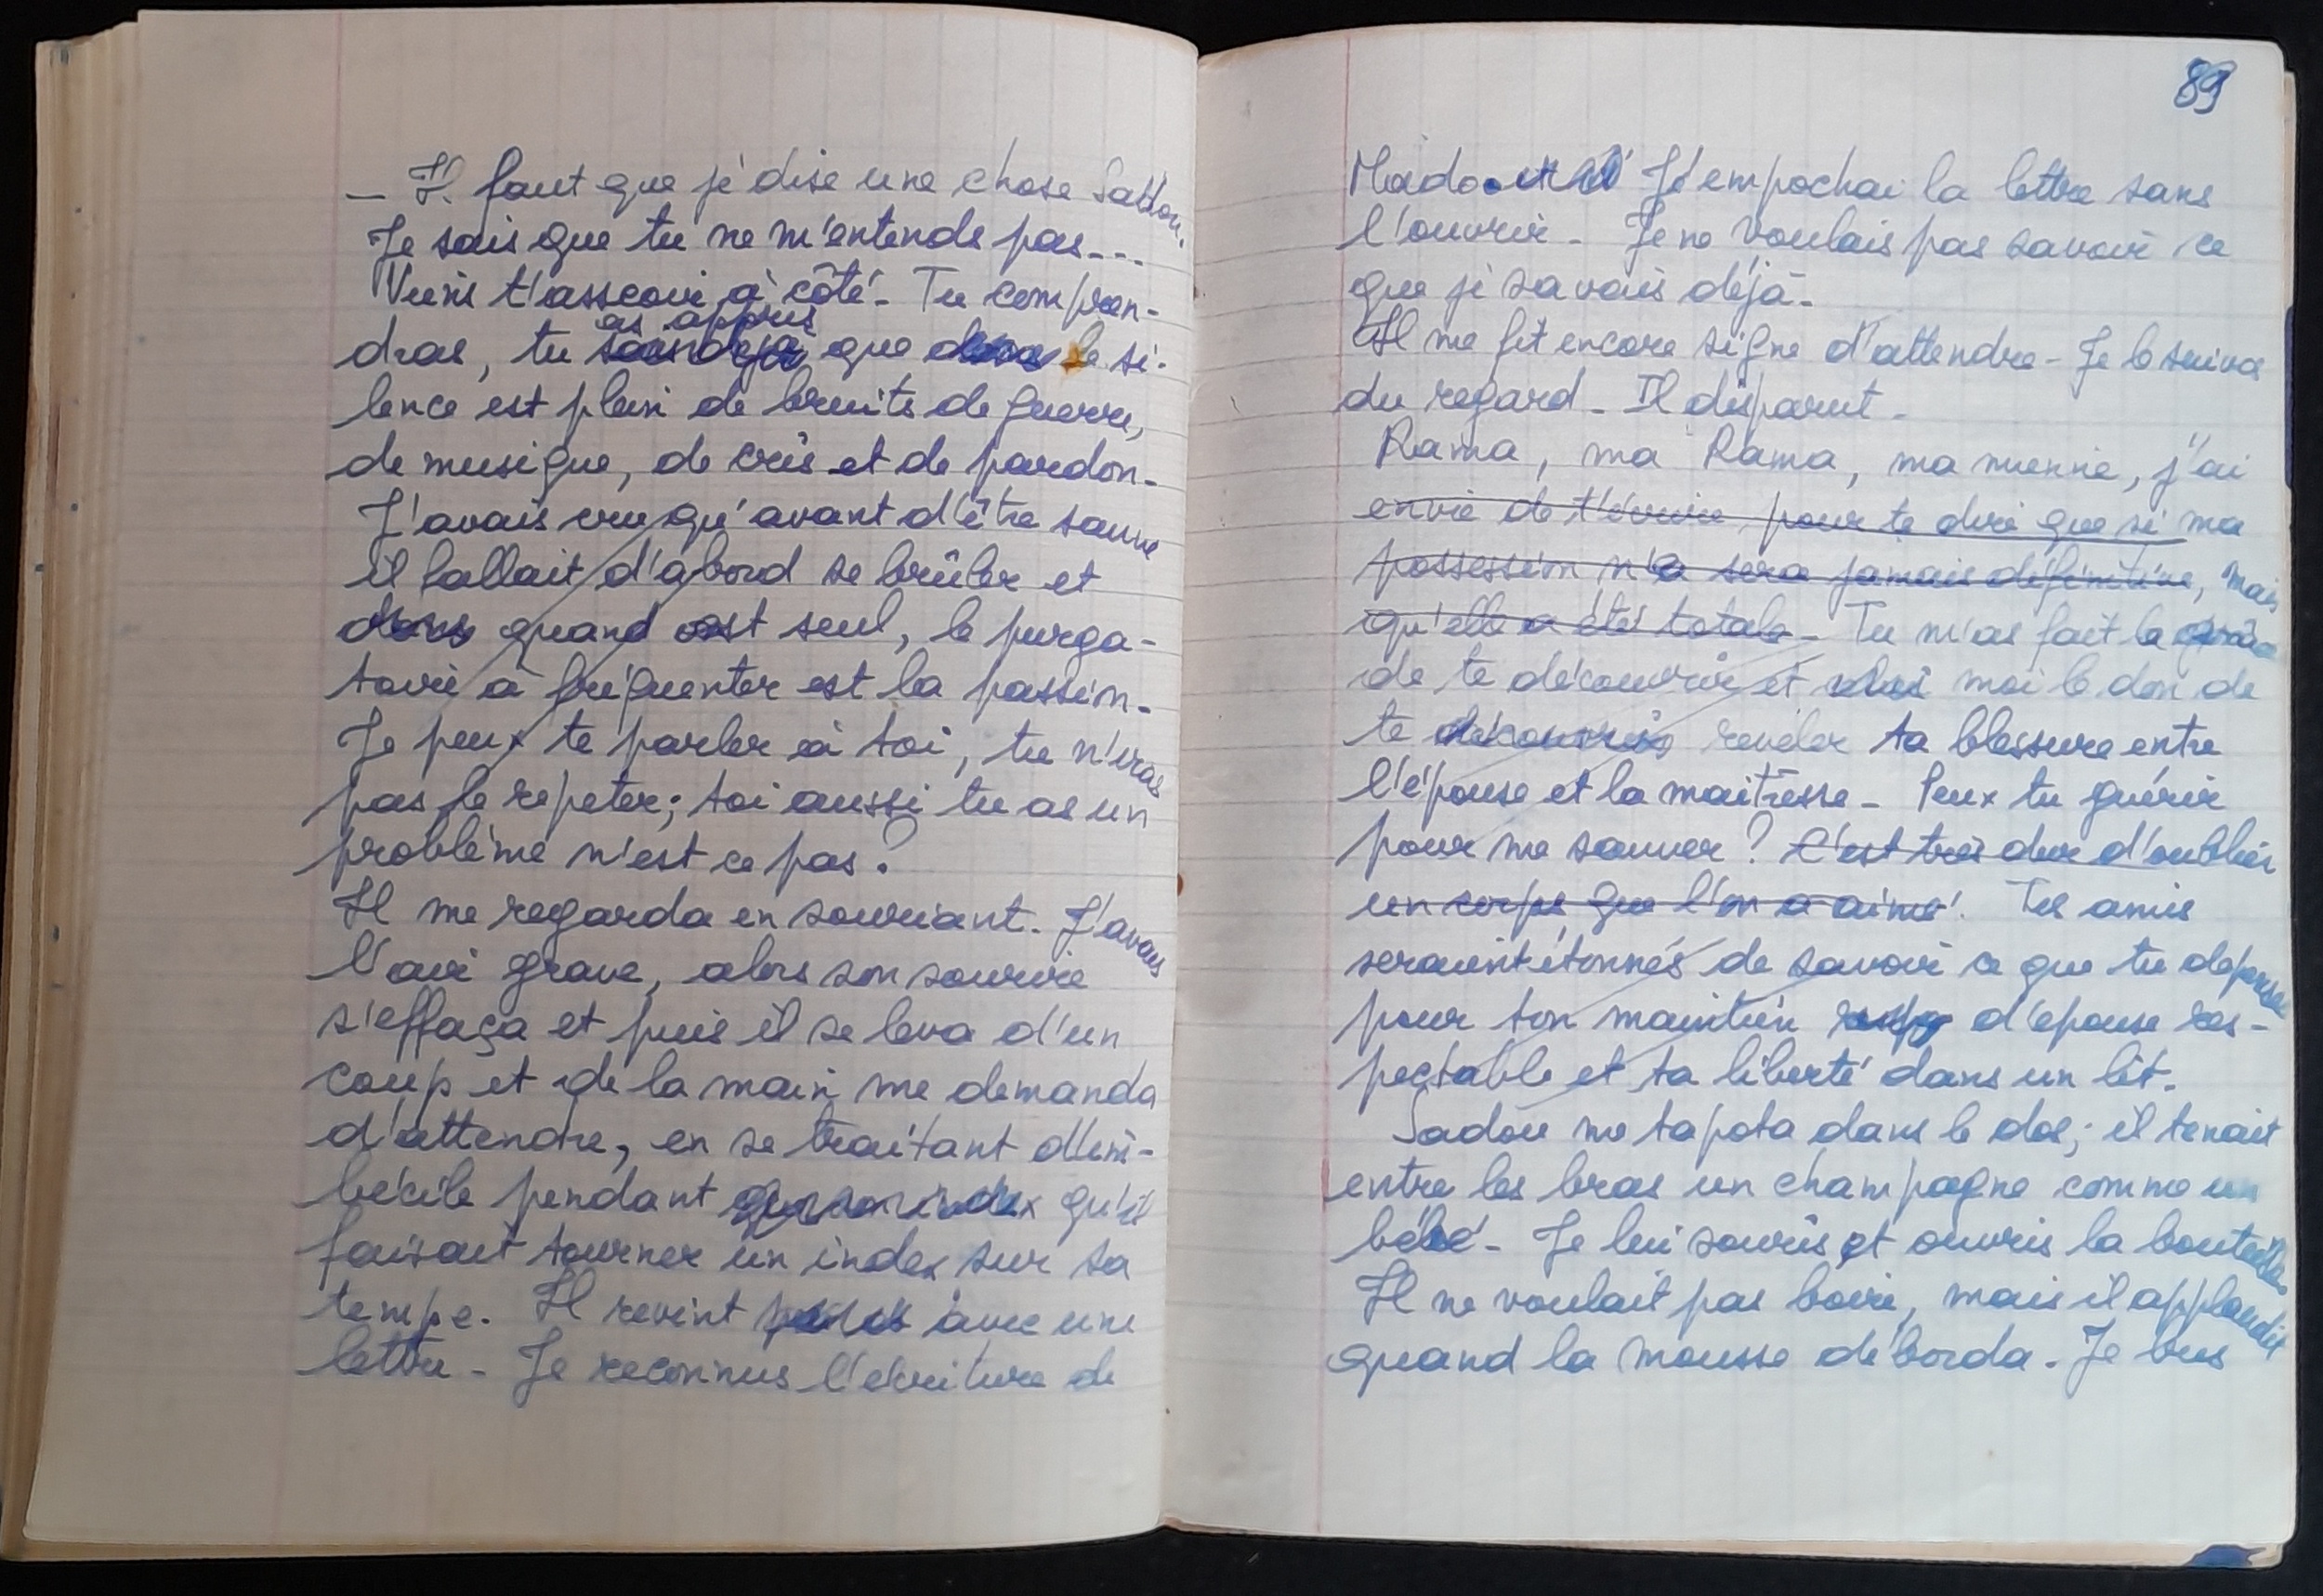 — Il faut que je dise une chose Sadou.
Je sais que tu ne m'entends pas....
Viens t'asseoir à côté - Tu compren-
as appris
dras, tu sais déjà que dans le si-
lence est plein de bruits de guerre,
de musique, de cris et de pardon -
J'avais cru qu'avant d'être sauvé
il fallait d'abord se brûler et
dans quand est seul, le purga-
toire à fréquenter est la passion -
Je peux te parler à toi, tu n'iras
pas le repeter; toi aussi tu as un
problème n'est ce pas ?
Il me regarda en souriant. J'avais
l'air grave, alors son sourire
s'effaça et puis il se leva d'un
coup et de la main me demanda
d'attendre, en se traitant d'im-
bécile pendant que son index qu'il
faisait tourner un index sur sa
tempe. Il revint avec une
lettre - Je reconnus l'écriture de
89
Mado. et Je empochai la lettre sans
l'ouvrir - Je ne voulais pas savoir ce
que je savais déjà -
Il me fit encore signe d'attendre - Je le suivas
du regard - Il disparut -
Rama, ma Rama, ma mienne, j'ai
envie de t'écrire pour te dire que si ma
possession n'a sera jamais définitive, mais
qu'elle a été totale - Tu m'as fait la grâce
de te découvrir et moi le don de
te découvrir révéler ta blessure entre
l'épouse et la maîtresse - Peux tu guérir
pour me sauver ? C'est très dur d'oublier
un corps que l'on a aimé. Tes amis
seraient étonnés de savoir ce que tu depenses
pour ton maintien resp d'epouse res-
pectable et ta liberté dans un lit.
Sadou me tapota dans le dos; il tenait
entre les bras un champagne comme un
bébé - Je lui souris et ouvris la bouteille.
Il ne voulait pas boire, mais il applaudit
quand la mousse déborda. Je bus